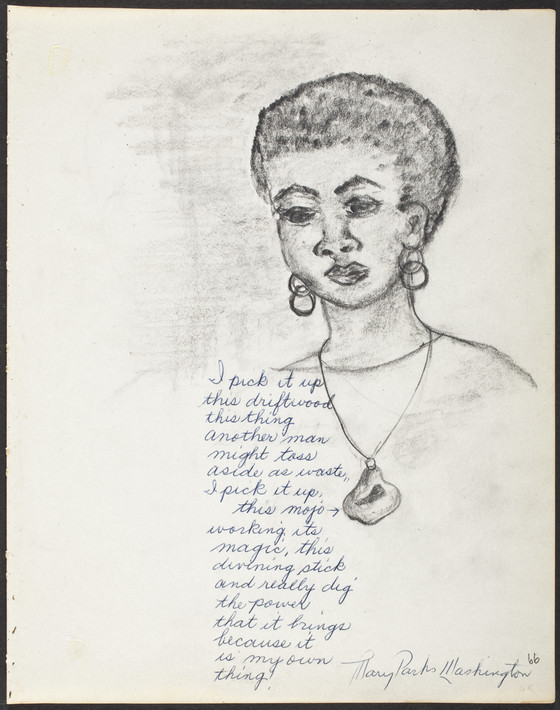 I pick it up
this driftwood
this thing
another man
might toss
aside as waste,
I pick it up,
this mojo →
working its
magic, this
divining stick
and really dig
the power
that it brings
because it
is my own
thing!
Mary Parks Washington 66